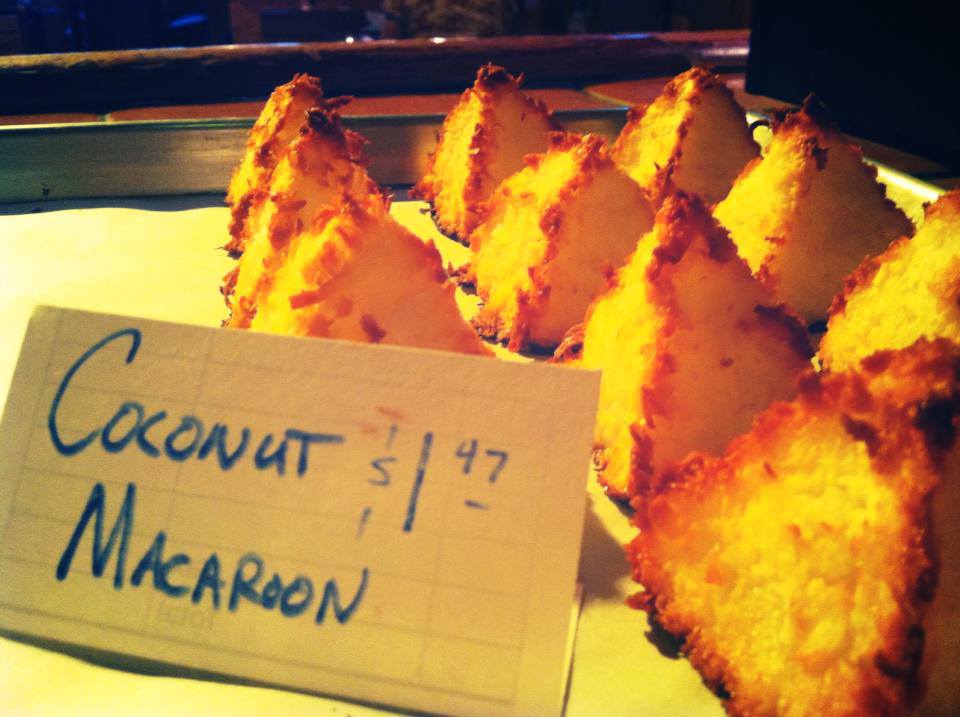 COCONUT $1 47
MACAROON